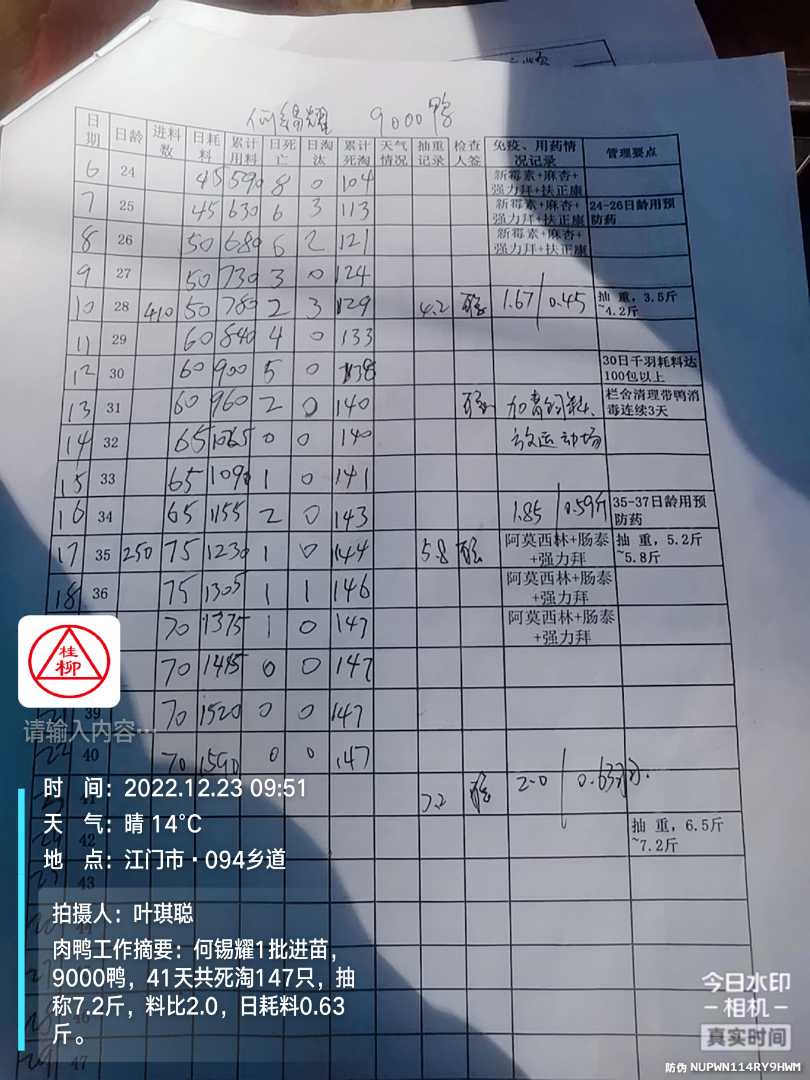 何锡耀 9000鸭
日期 日龄 进料数 日耗料 累计用料 日死亡 日淘汰 累计死淘 天气情况 抽重记录 检查人签 免疫、用药情况记录 管理要点
6 24 45 590 8 0 104 新霉素+麻杏+强力拜+扶正康
7 25 45 630 6 3 113 新霉素+麻杏+强力拜+扶正康 24-26日龄用预防药
8 26 50 680 6 2 121 新霉素+麻杏+强力拜+扶正康
9 27 50 730 3 0 124
10 28 410 50 780 2 3 129 4.2 1.67/0.45 抽 重,3.5斤~4.2斤
11 29 60 840 4 0 133
12 30 60 900 5 0 138 30日千羽耗料达100包以上
13 31 60 960 2 0 140 栏舍清理带鸭消毒连续3天
14 32 65 1065 0 0 140 放运动场
15 33 65 1090 1 0 141
16 34 65 1155 2 0 143 1.85/0.59斤 35-37日龄用预防药
17 35 250 75 1230 1 0 144 5.8 阿莫西林+肠泰+强力拜 抽 重,5.2斤~5.8斤
18 36 75 1305 1 1 146 阿莫西林+肠泰+强力拜
70 1375 1 0 147 阿莫西林+肠泰+强力拜
70 1445 0 0 147
39 70 1520 0 0 147
22 40 70 1590 0 0 147
41 7.2 2.0/0.63
42 抽 重,6.5斤~7.2斤
43
47
桂柳
请输入内容…
时 间:2022.12.23 09:51
天 气:晴 14℃
地 点:江门市·094乡道
拍摄人:叶琪聪
肉鸭工作摘要:何锡耀1批进苗,
9000鸭,41天共死淘147只,抽
称7.2斤,料比2.0,日耗料0.63
斤。
今日水印
-相机-
真实时间
防伪 NUPWN114RY9HWM